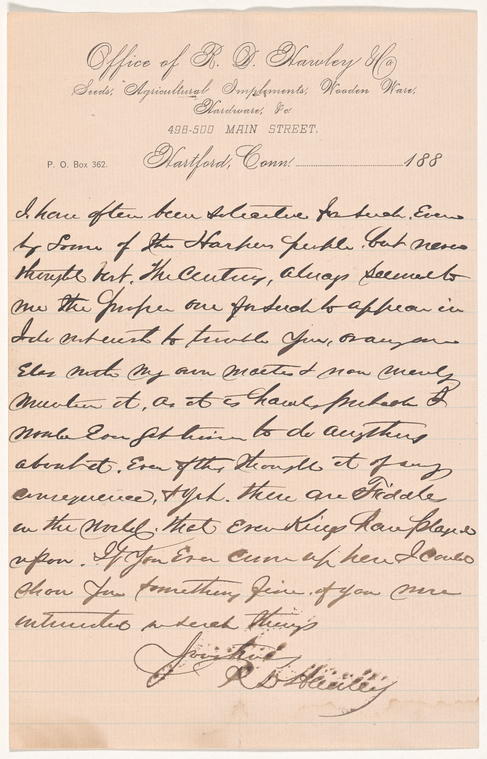 Office of R. D. Hawley & Co
Seeds, Agricultural Implements, Wooden Ware,
Hardware, &c
498-500 MAIN STREET.
P. O. Box 362. Hartford, Conn. 188
I have often been solicited for such, Even
by Some of the Harpers people. but never
thought best. The Century, always Seemed to
me the proper one for such to appear in
I do not wish to trouble You, or any one
Else with my own matters & now merely
mention it, as it is hardly probable I
would Ever get time to do anything
about it. Even if they thought it of any
consequence, & yet. there are Fiddles
in the world, that Even Kings have played
upon. If You Ever come up here I could
show You Something fine. if you were
interested in such things
Yours truly
R D Hawley